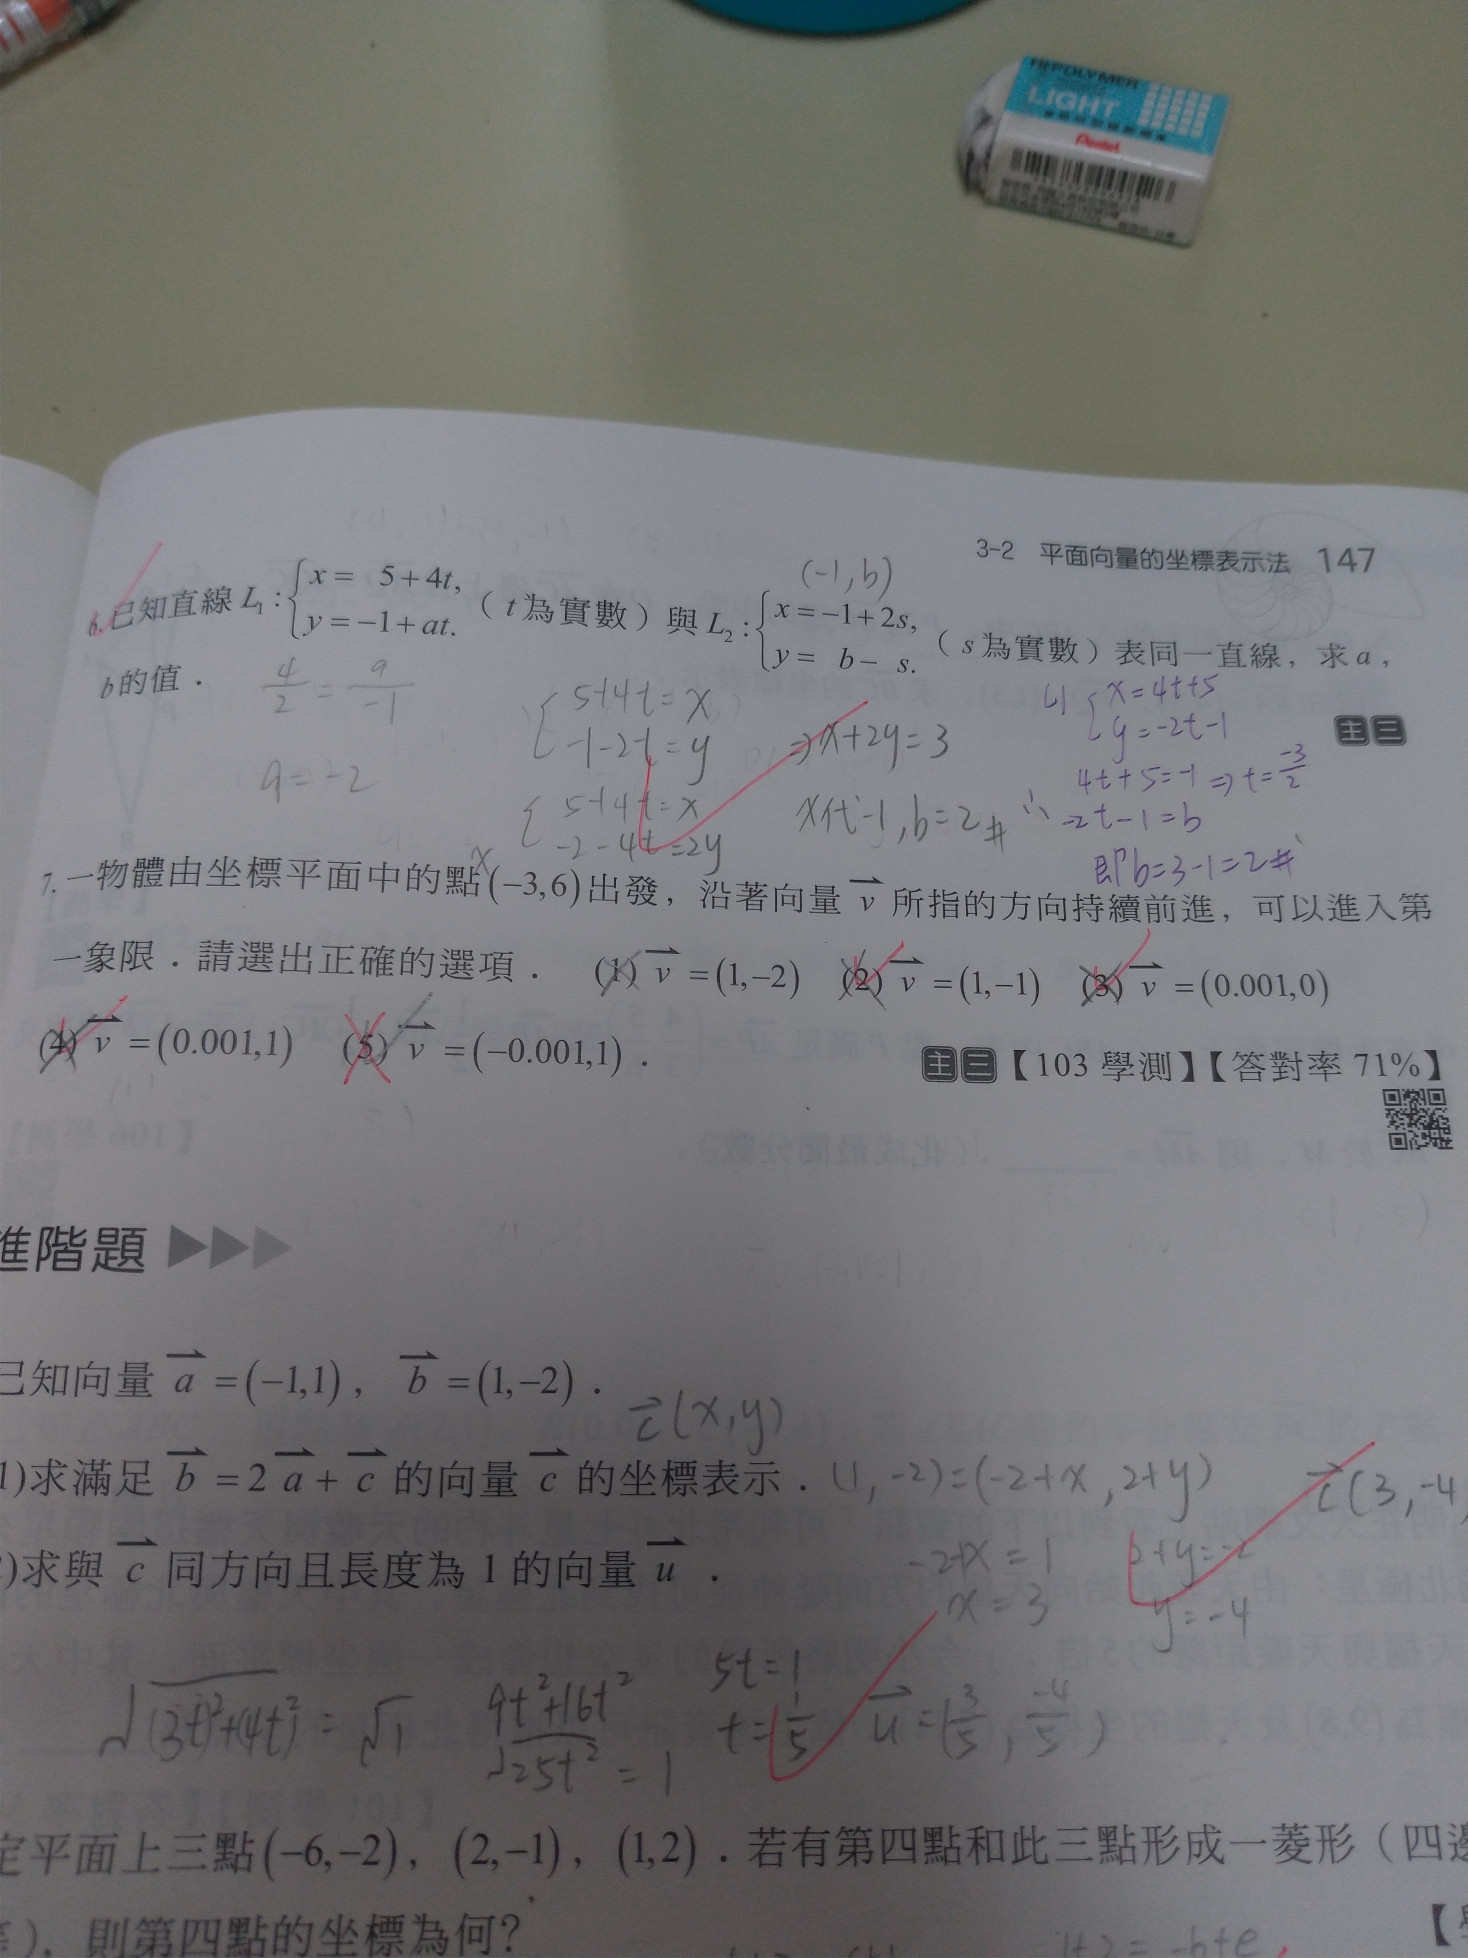 HI-POLYMER
LIGHT
Pentel
3-2 平面向量的坐標表示法 147
(-1,b)
6.已知直線 L₁:{x= 5+4t, y=-1+at. (t為實數)與 L₂:{x=-1+2s, y= b- s. (s為實數)表同一直線,求a,
b的值.
4/2 = a/-1
a=-2
{5+4t=x
-1-2t=y
⇒x+2y=3
{5+4t=x
-2-4t=2y
x代-1,b=2#
L1 {x=4t+5
y=-2t-1
4t+5=-1⇒t=-3/2
∴-2t-1=b
即b=3-1=2#
主 三
7.一物體由坐標平面中的點(-3,6)出發,沿著向量 v 所指的方向持續前進,可以進入第
一象限.請選出正確的選項. (1) v =(1,-2) (2) v =(1,-1) (3) v =(0.001,0)
(4) v =(0.001,1) (5) v =(-0.001,1).
主 三【103 學測】【答對率 71%】
進階題
已知向量 a =(-1,1), b =(1,-2).
c(x,y)
1)求滿足 b =2 a + c 的向量 c 的坐標表示.
(1,-2)=(-2+x,2+y)
c(3,-4
)求與 c 同方向且長度為 1 的向量 u .
-2+x=1
x=3
2+y=-2
y=-4
√(3t)²+(4t)² = √1
9t²+16t²
√25t² = 1
5t=1
t=1/5
u=(3/5,-4/5)
定平面上三點(-6,-2),(2,-1),(1,2).若有第四點和此三點形成一菱形(四邊
),則第四點的坐標為何?